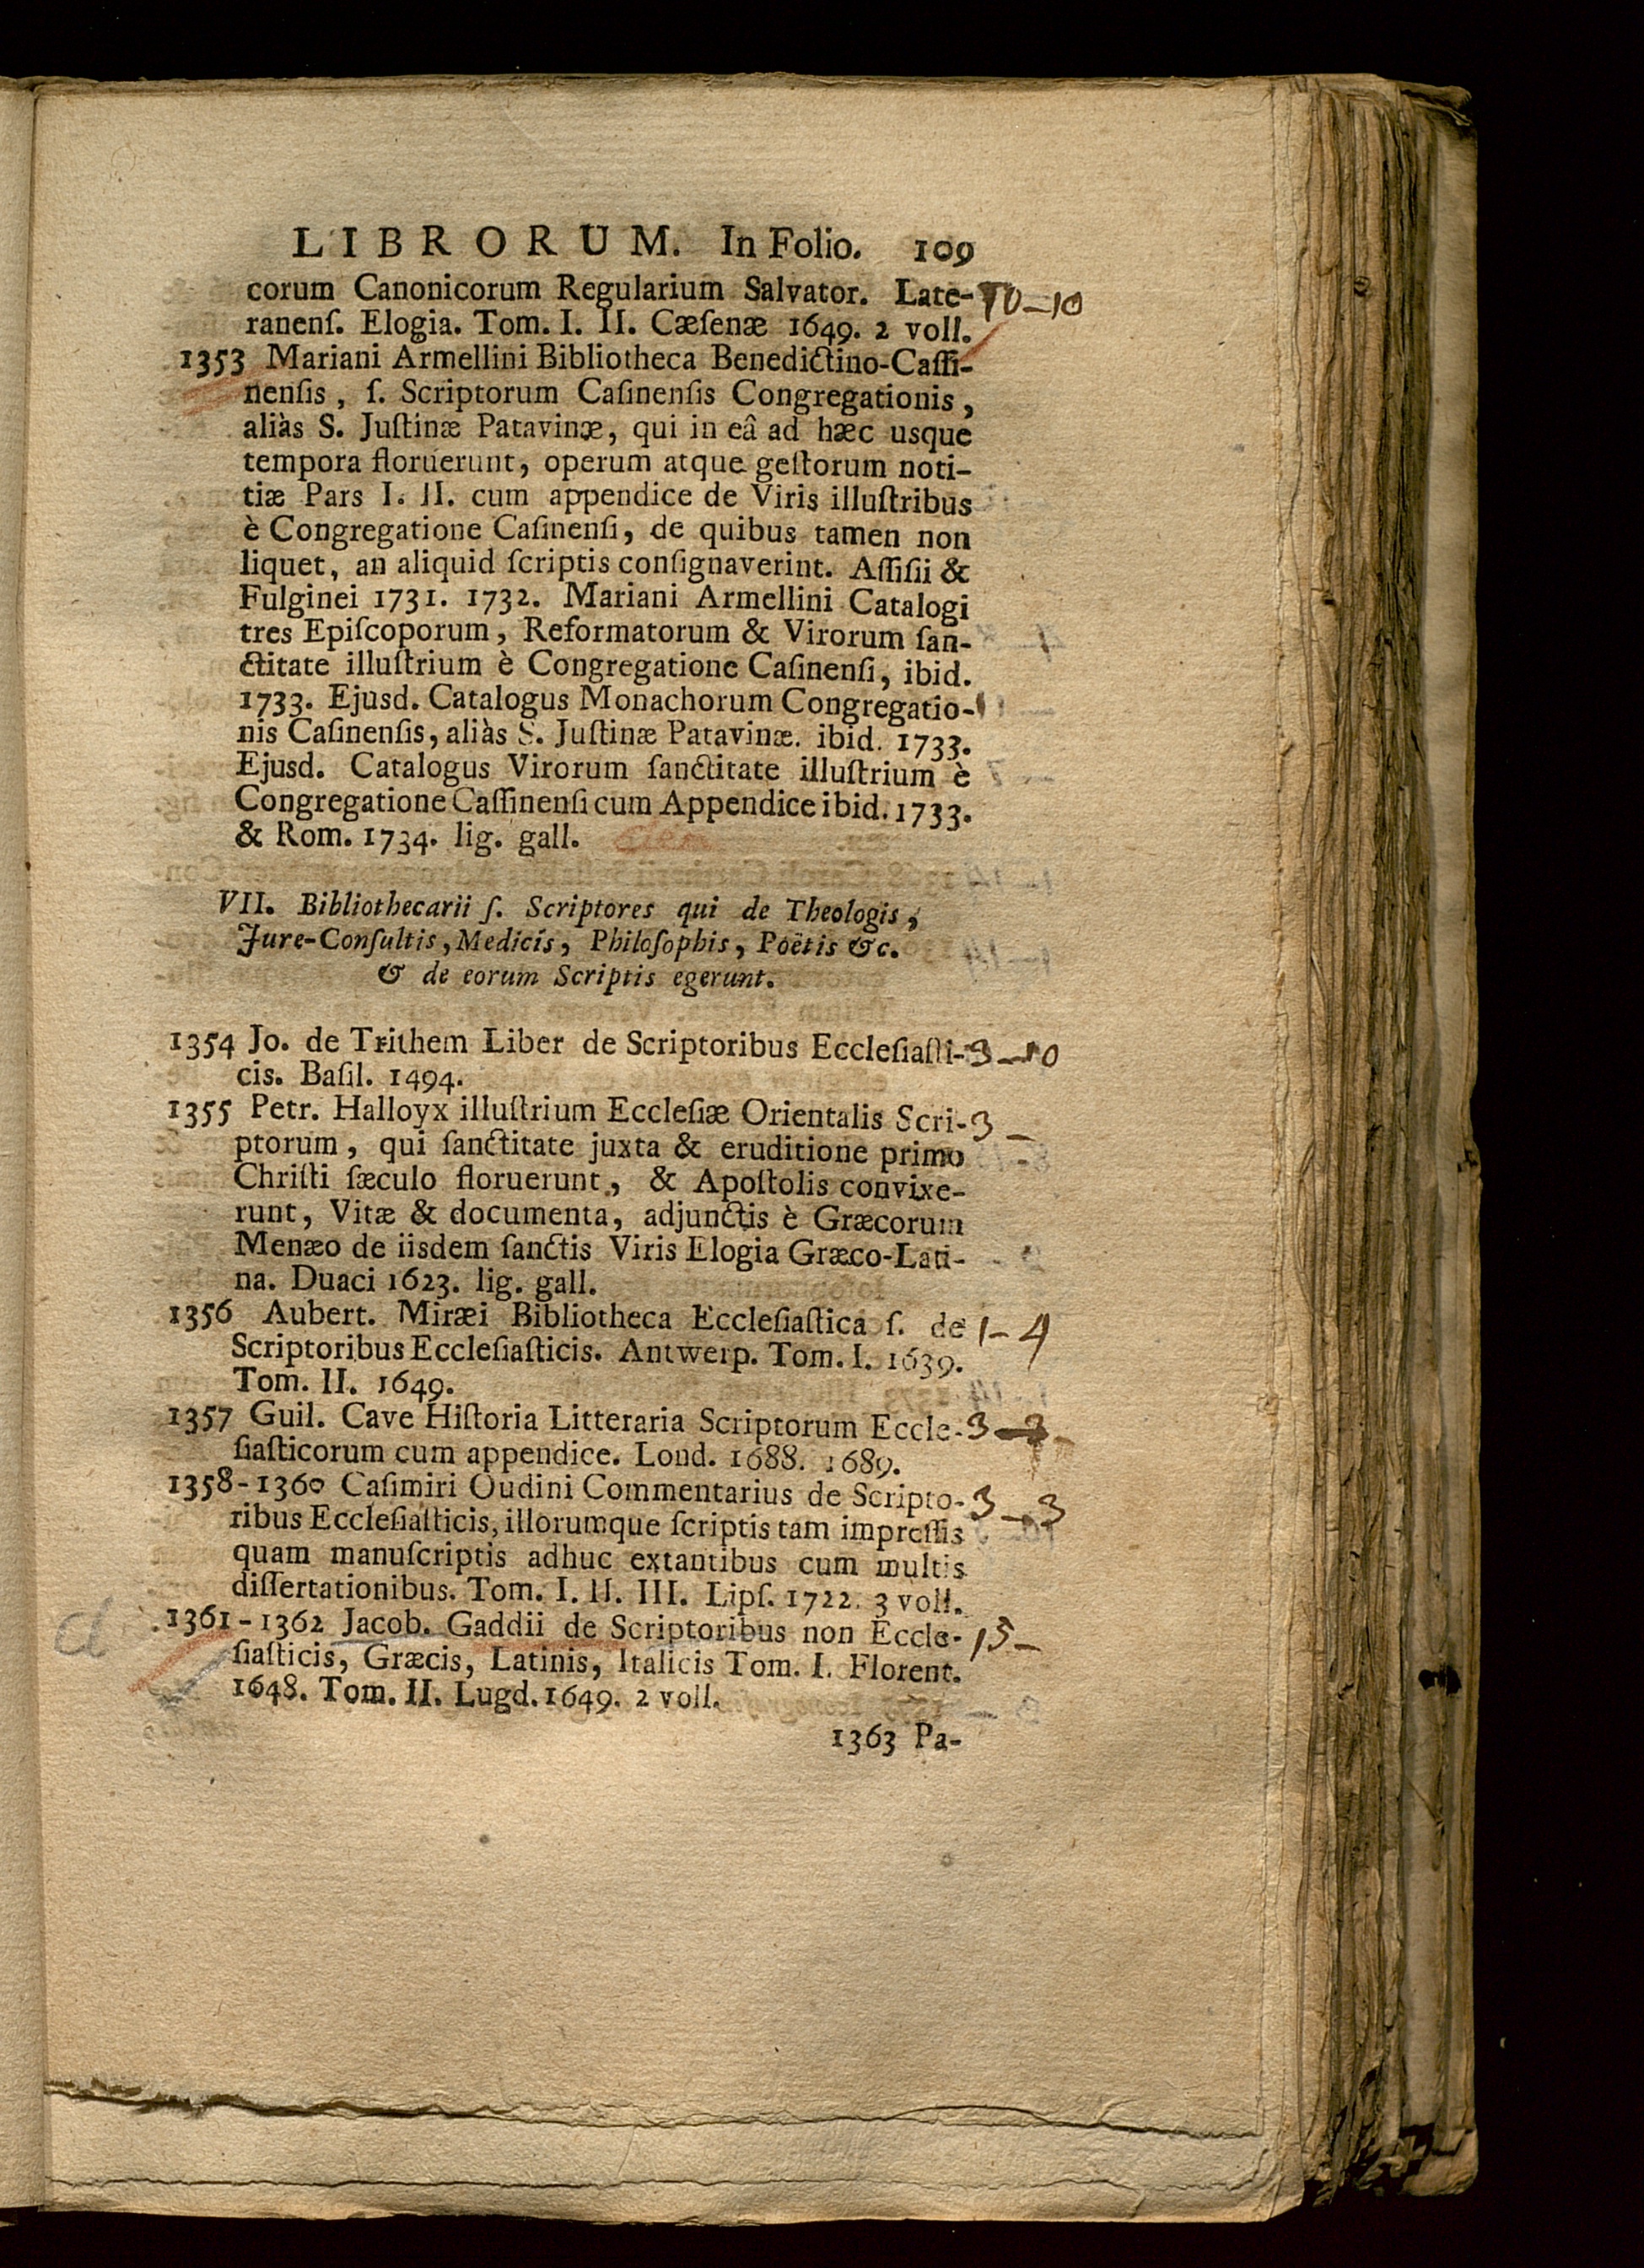 LIBRORUM. In Folio. 109
corum Canonicorum Regularium Salvator. Late- 10—10
ranenſ. Elogia. Tom. I. II. Cæſenæ 1649. 2 voll.
1353 Mariani Armellini Bibliotheca Benedictino-Caſſi-
nenſis, ſ. Scriptorum Caſinenſis Congregationis,
aliàs S. Juſtinæ Patavinæ, qui in eâ ad hæc usque
tempora floruerunt, operum atque geſtorum noti-
tiæ Pars I. II. cum appendice de Viris illuſtribus
è Congregatione Caſinenſi, de quibus tamen non
liquet, an aliquid ſcriptis conſignaverint. Aſſiſii &
Fulginei 1731. 1732. Mariani Armellini Catalogi
tres Epiſcoporum, Reformatorum & Virorum ſan-
ctitate illuſtrium è Congregatione Caſinenſi, ibid.
1733. Ejusd. Catalogus Monachorum Congregatio-
nis Caſinenſis, aliàs S. Juſtinæ Patavinæ. ibid. 1733.
Ejusd. Catalogus Virorum ſanctitate illuſtrium è
Congregatione Caſſinenſi cum Appendice ibid. 1733.
& Rom. 1734. lig. gall.
VII. Bibliothecarii ſ. Scriptores qui de Theologis,
Jure-Conſultis, Medicis, Philoſophis, Poëtis &c.
& de eorum Scriptis egerunt.
1354 Jo. de Trithem Liber de Scriptoribus Eccleſiaſti- 3—10
cis. Baſil. 1494.
1355 Petr. Halloyx illuſtrium Eccleſiæ Orientalis Scri- 3—
ptorum, qui ſanctitate juxta & eruditione primo
Chriſti ſæculo floruerunt, & Apoſtolis convixe-
runt, Vitæ & documenta, adjunctis è Græcorum
Menæo de iisdem ſanctis Viris Elogia Græco-Lati-
na. Duaci 1623. lig. gall.
1356 Aubert. Miræi Bibliotheca Eccleſiaſtica ſ. de 1—4
Scriptoribus Eccleſiaſticis. Antwerp. Tom. I. 1639.
Tom. II. 1649.
1357 Guil. Cave Hiſtoria Litteraria Scriptorum Eccle- 3—
ſiaſticorum cum appendice. Lond. 1688. 1689.
1358-1360 Caſimiri Oudini Commentarius de Scripto- 3—3
ribus Eccleſiaſticis, illorumque ſcriptis tam impreſſis
quam manuſcriptis adhuc extantibus cum multis
diſſertationibus. Tom. I. II. III. Lipſ. 1722. 3 voll.
d 1361-1362 Jacob. Gaddii de Scriptoribus non Eccle- 15—
ſiaſticis, Græcis, Latinis, Italicis Tom. I. Florent.
1648. Tom. II. Lugd. 1649. 2 voll.
1363 Pa-